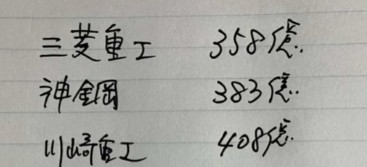 三菱重工 358億.
神鋼 383億.
川崎重工 408億.